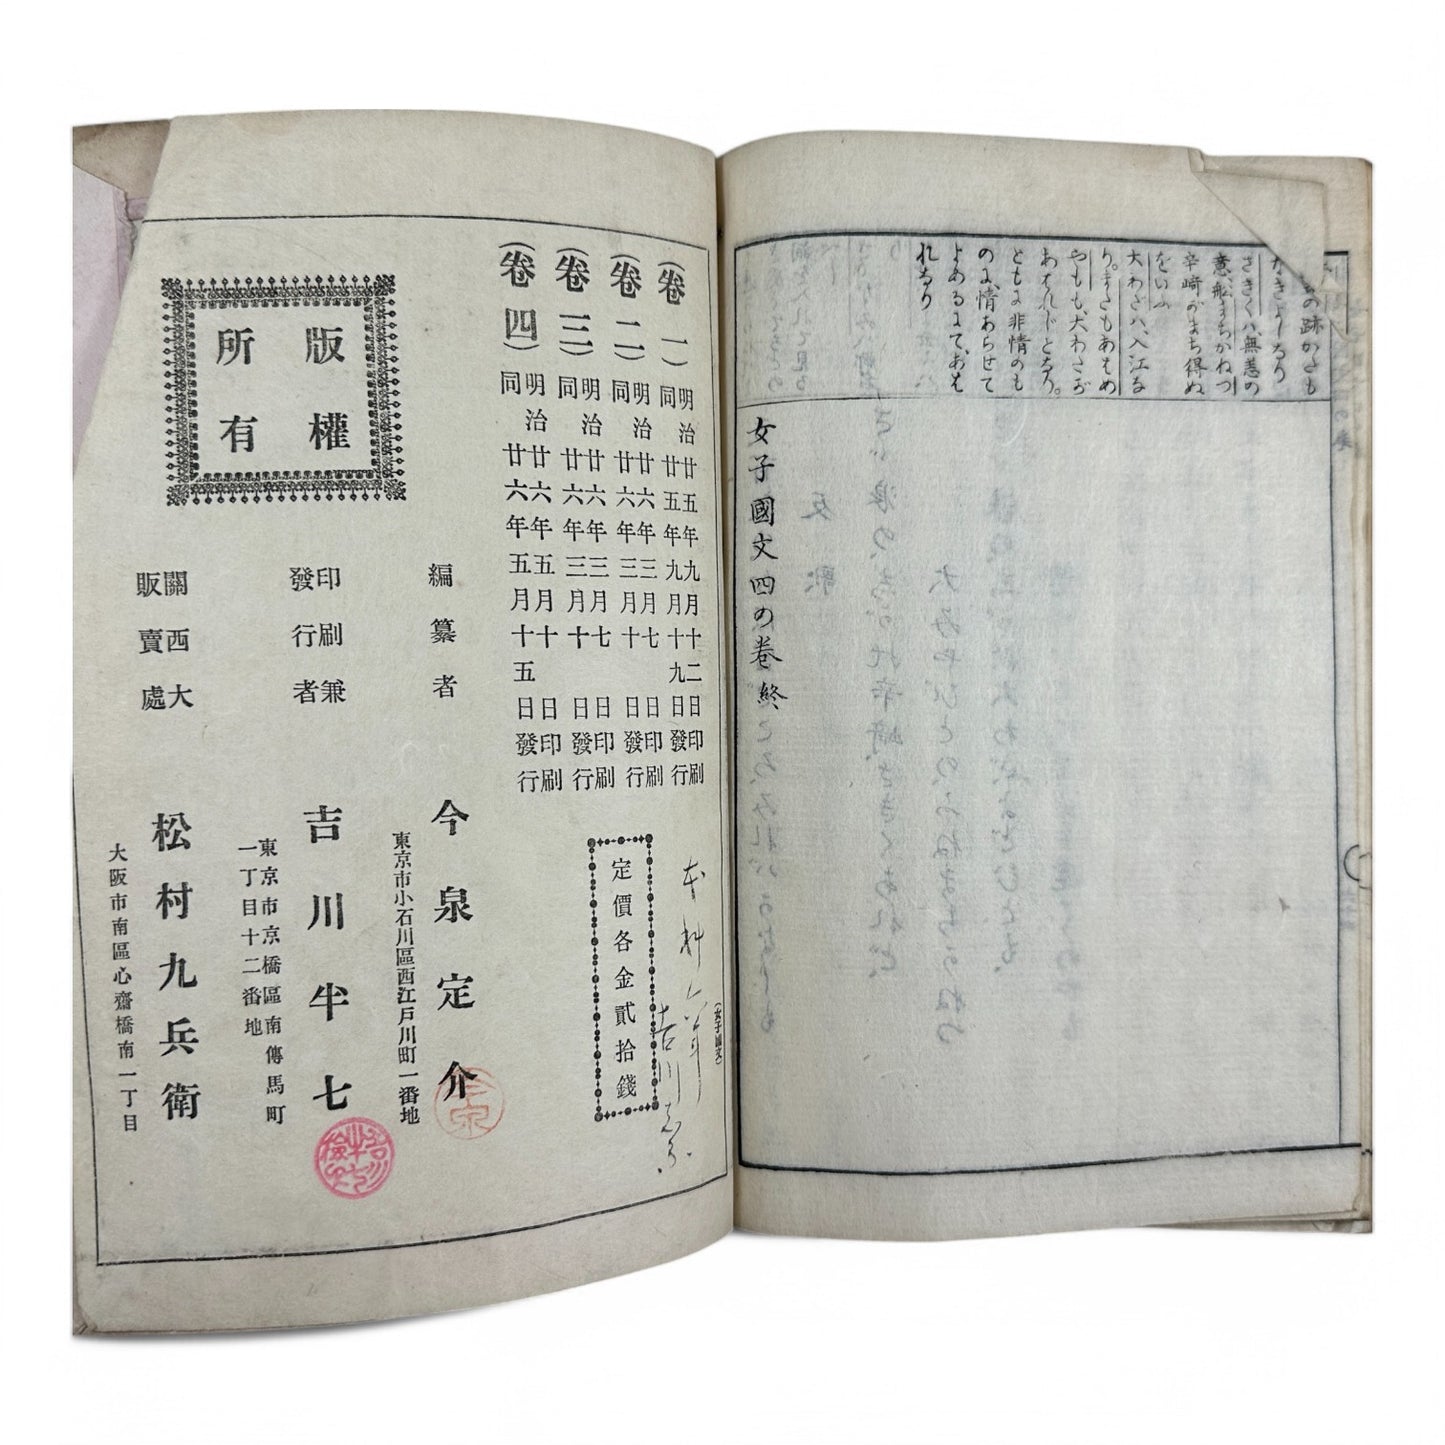 の跡かたも
なきよしなり
さきくハ、無恙の
意、船まちかねつ
辛崎がまち得ぬ
をいふ
大わだハ、入江な
り。またもあはめ
やも も、大わだが
あはれじとなり。
ともに非情のも
のに、情あらせて
よめるにて、おも
れなり
女子國文四の卷終
(女子國文)
(卷一)
明治廿五年九月十二日印刷
同廿五年九月十九日發行
(卷二)
明治廿六年三月七日印刷
同廿六年三月十日發行
(卷三)
明治廿六年三月七日印刷
同廿六年三月十日發行
(卷四)
明治廿六年五月十日印刷
同廿六年五月十五日發行
定價各金貳拾錢
編纂者
今泉定介
東京市小石川區西江戸川町一番地
印刷兼
發行者
吉川半七
東京市京橋區南傳馬町
一丁目十二番地
關西大
販賣處
松村九兵衛
大阪市南區心齋橋南一丁目
版權
所有